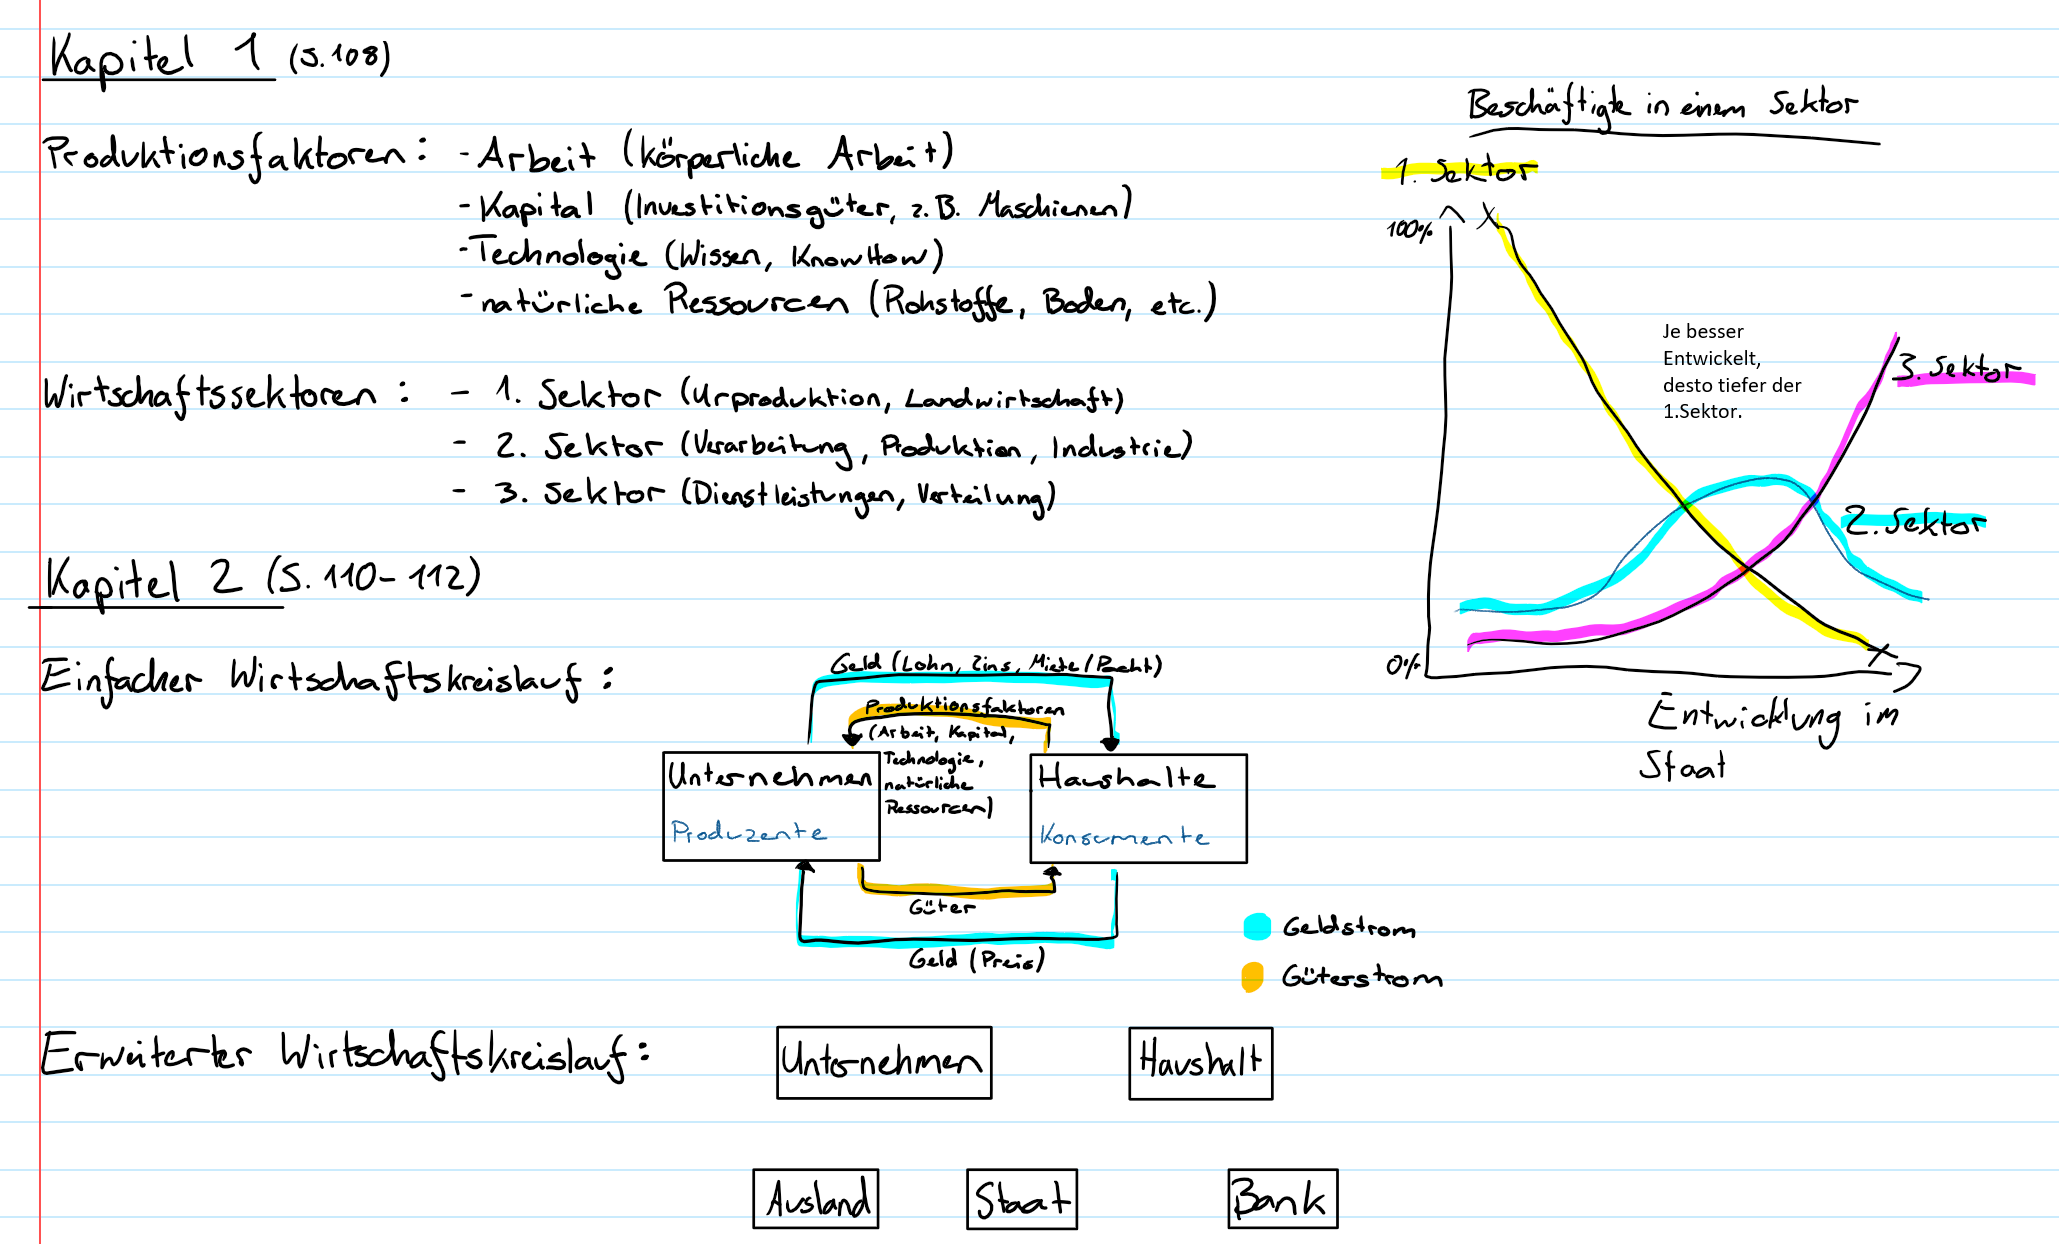 Kapitel 1 (S.108)
Produktionsfaktoren: - Arbeit (körperliche Arbeit)
- Kapital (Investitionsgüter, z.B. Maschienen)
- Technologie (Wissen, KnowHow)
- natürliche Ressourcen (Rohstoffe, Boden, etc.)
Wirtschaftssektoren: - 1. Sektor (Urproduktion, Landwirtschaft)
- 2. Sektor (Verarbeitung, Produktion, Industrie)
- 3. Sektor (Dienstleistungen, Verteilung)
Beschäftigte in einem Sektor
1. Sektor
100%
Je besser
Entwickelt,
desto tiefer der
1.Sektor.
3. Sektor
2. Sektor
0%
Entwicklung im
Staat
Kapitel 2 (S. 110-112)
Einfacher Wirtschaftskreislauf:
Geld (Lohn, Zins, Miete/Pacht)
Produktionsfaktoren
(Arbeit, Kapital,
Technologie,
natürliche
Ressourcen)
Unternehmen
Produzente
Haushalte
Konsumente
Güter
Geld (Preis)
Geldstrom
Güterstrom
Erweiterter Wirtschaftskreislauf:
Unternehmen
Haushalt
Ausland
Staat
Bank